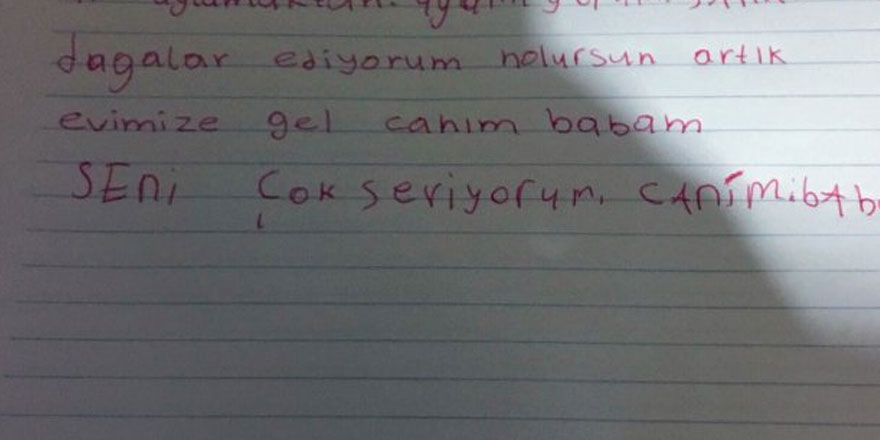 dagalar ediyorum nolursun artık
evimize gel canım babam
SEni Çok seviyorum. CAnımibAb